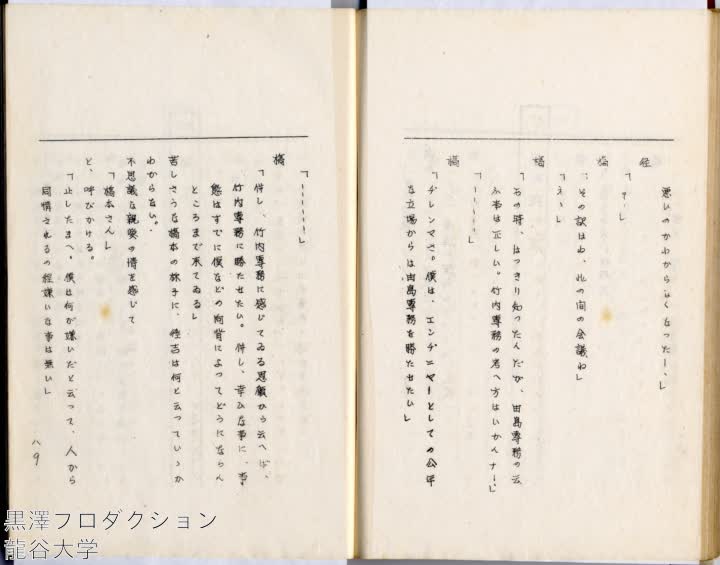 悪いのかわからなくなつたー」
経
「？ー」
橋
「その訳はね、此の間の会議ね」
「えゝ」
橋
「あの時、はつきり知つたんだが、由島専務の云
ふ事は正しい。竹内専務の考へ方はいかんナー」
「ーーーー」
橋
「ヂレンマさ。僕は、エンヂニヤーとしての公平
な立場からは由島専務を勝たせたい」
「ーーーー」
橋
「併し、竹内専務に感じてゐる恩顧から云へば、
竹内専務に勝たせたい。併し、幸ひな事に、事
態はすでに僕などの向背によつてどうにならん
ところまで来てゐる」
苦しさうな橋本の様子に、経吉は何と云つていゝか
わからない。
不思議な親愛の情を感じて
「橋本さん」
と、呼びかける。
「止したまへ。僕は何が嫌いだと云つて、人から
同情されるの程嫌いな事は無い」
八9
黒澤プロダクション
龍谷大学